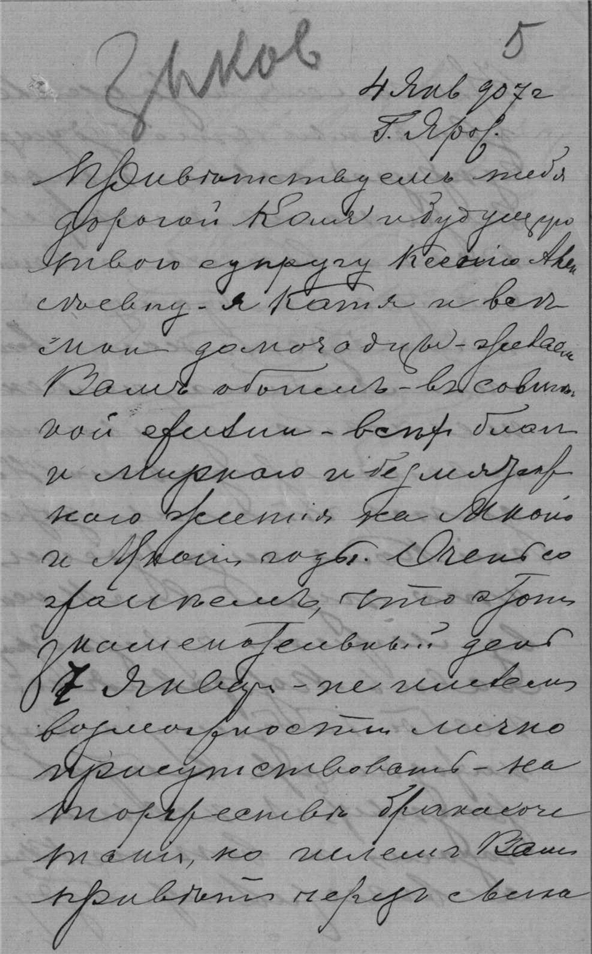 Зыков
5
4 Янв 907 г
Г. Яросл.
Привѣтствуемъ тебя
дорогой Коля и будущую
твою супругу Ксенію
я Катя и всѣ
мои домочадцы - желаем
Вамъ обоимъ - въ совмѣст
ной жизни - всѣхъ благъ
и мирнаго и безмятеж
наго житія на Многія
и Многія годы. Очень со
жалѣемъ, что въ этотъ
знаменательный день
7 Января - не имѣемъ
возможности лично
присутствовать - на
торжествѣ бракосоче
танія, но шлемъ Вамъ
привѣтъ черезъ